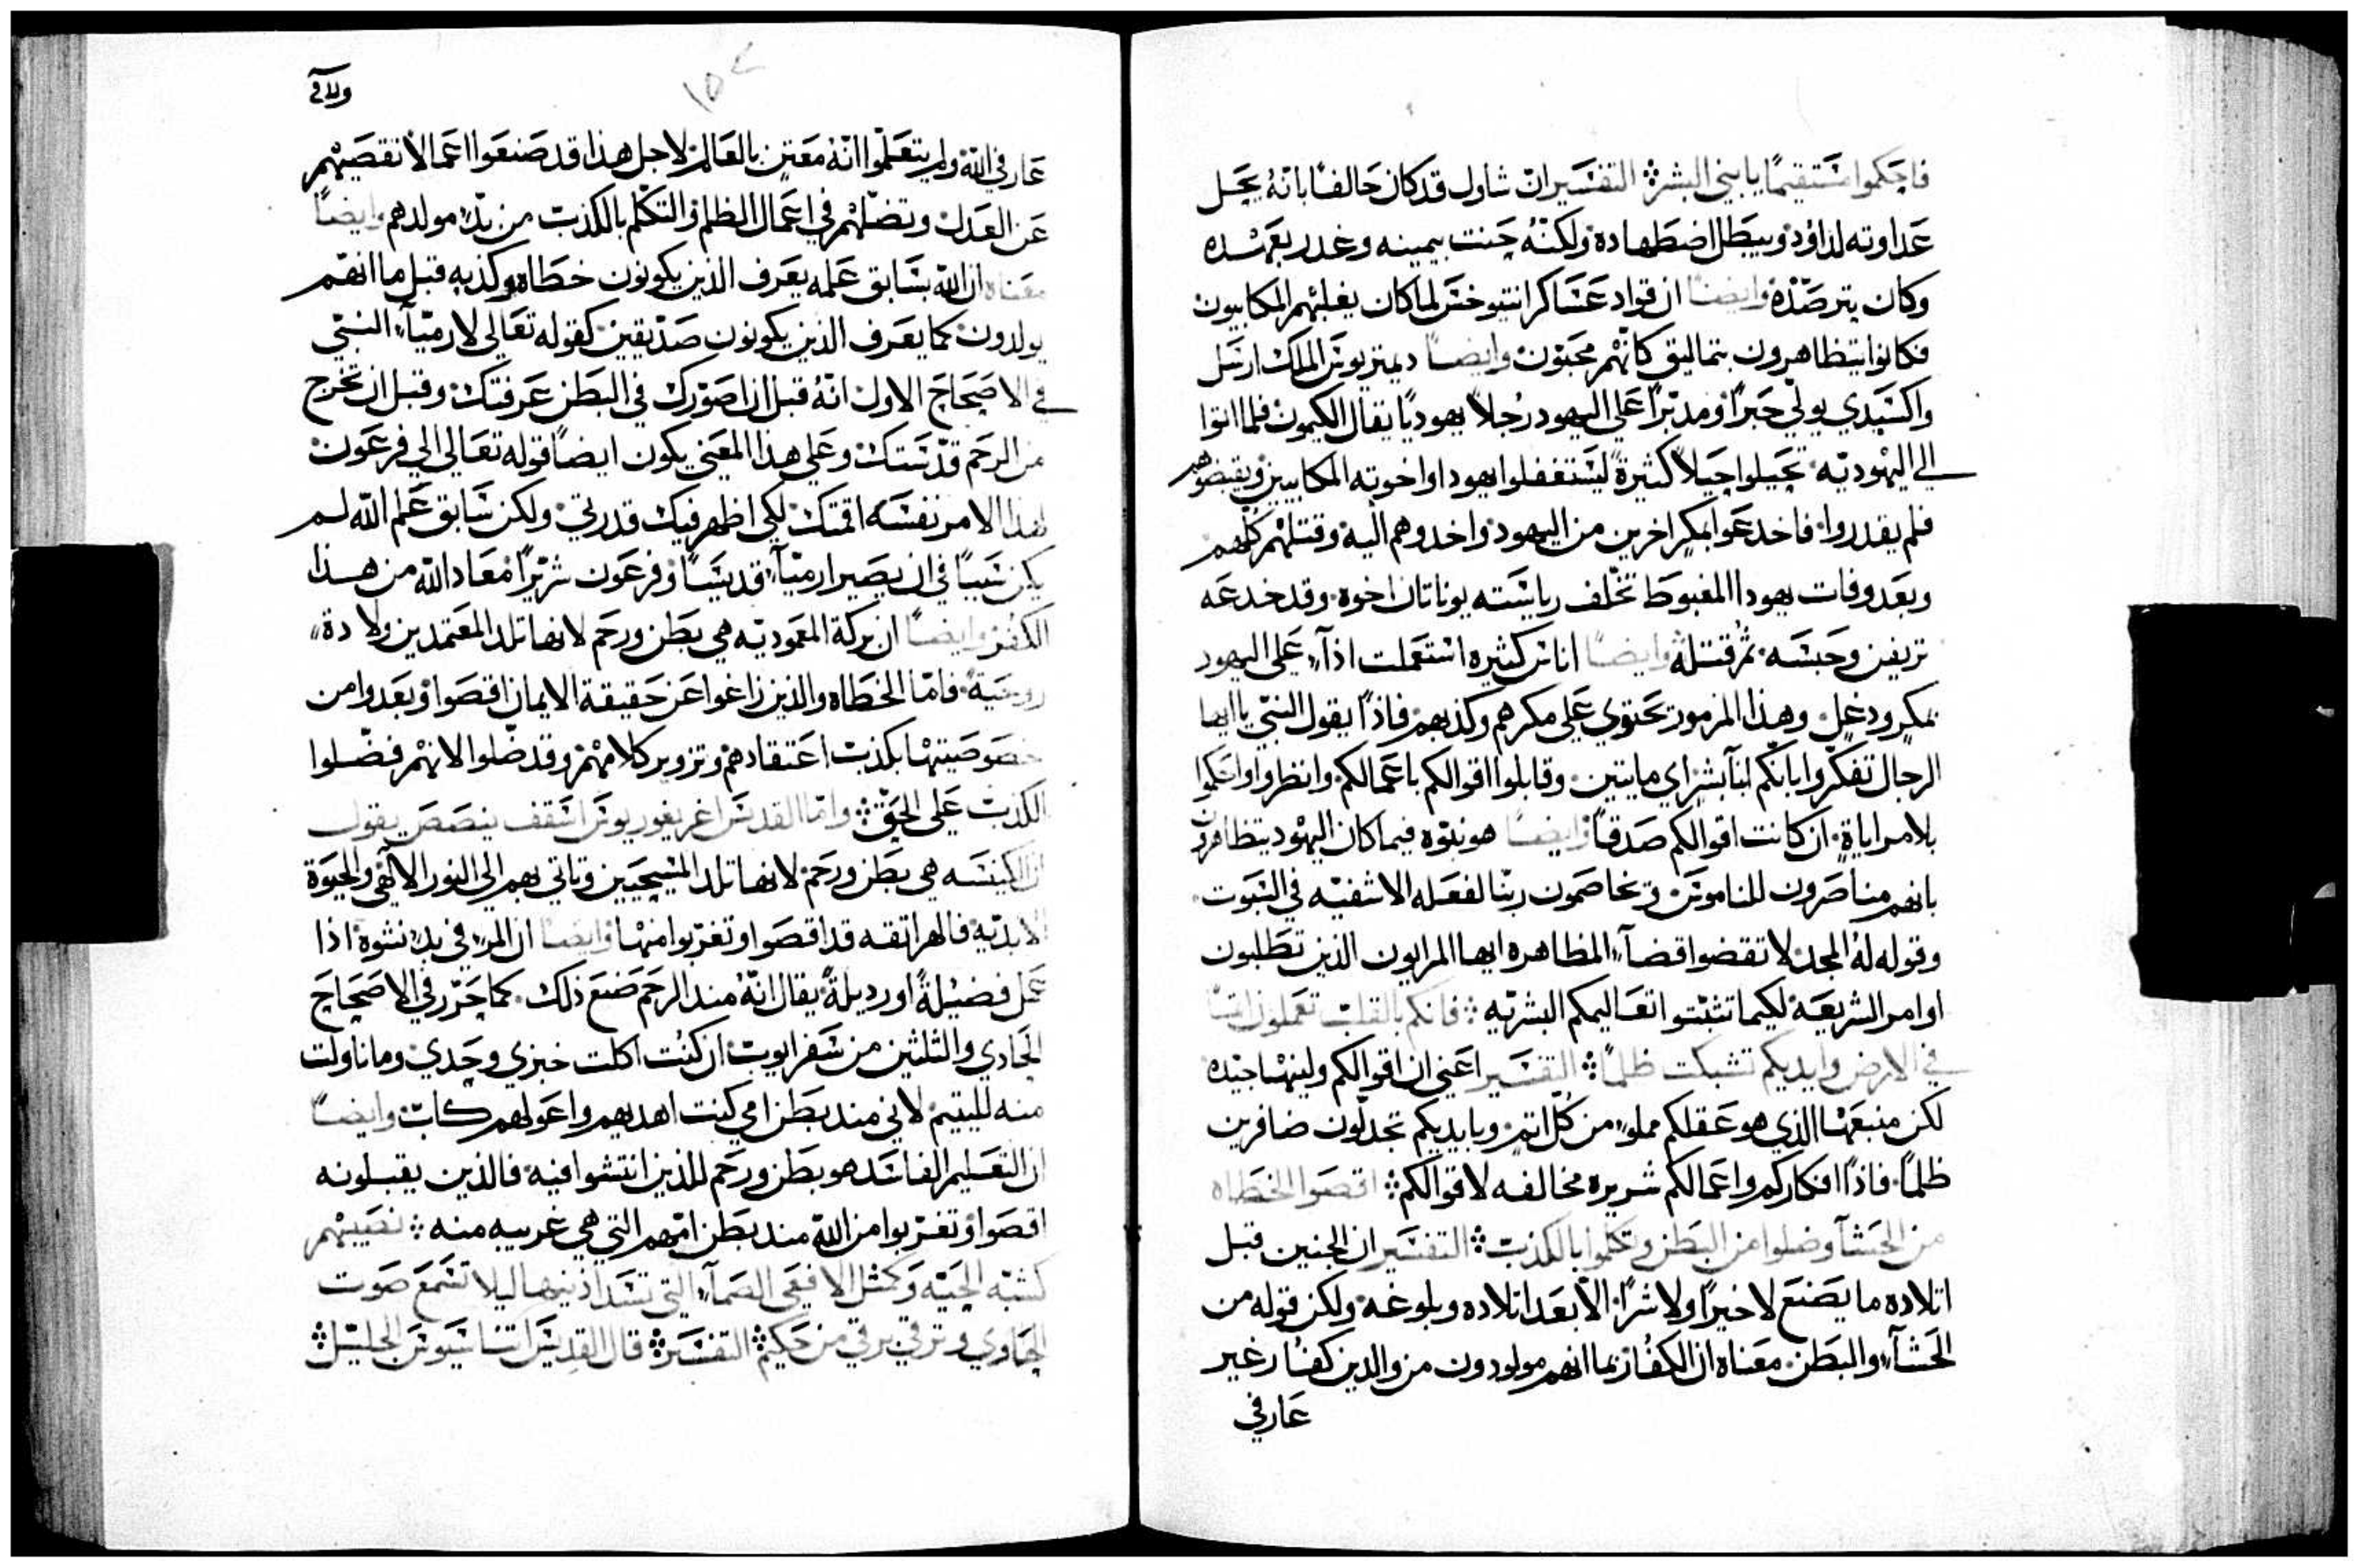 فاحكموا مستقيمًا يا بني البشر ⁘ التفسير ان شاول قد كان حالفًا بانّهُ يحل
عداوته لداوْد ويبطل اضطهاده ولكنّهُ حنت بيمينه وغدر بعهده
وكان يترصّده وايضًا ان قواد عساكر انتيوخس لما كان يغلبهم المكابيون
فكانوا يتظاهرون بتماليق كانّهم محبّون وايضًا ديمتريوس الملك ارسل
واكسيدي يولّي حبرًا ومدبّرًا على اليهود رُجلاً يهوديًا يقال الكيموس فلما اتوا
الي اليهوديّه تحيلوا حيلاً كثيرةً ليستغفلوا يهودا واخوته المكابيين ويقبضوهم
فلم يقدروا فاخدعوا بمكرٍ اخرين من اليهود واخدوهم اليه وقتلهم كلّهم
وبعد وفات يهودا المغبوط تخلّف رياسته يوناتان اخوه وقد خدعه
تريفن وحبسه ثمُ قتله وايضًا اناس كثيره استعملت اذآء على اليهود
بمكرٍ ودغلٍ وهذا المزمور تحتوي على مكرهم وكذبهم فاذًا يقول النبّي يا ايها
الرجال تفكّروا بانّكم ابنآ بشرٍ اي مايتين وقابلوا اقوالكم باعمالكم وانظروا واحكموا
بلا مراياةٍ ان كانت اقوالكم صدقًا وايضًا هو نبوّه فيما كان اليهود يتظاهرون
بانهم مناصرون للناموس وتخاصمون ربّنا لفعله الاشفيّه في السبوت
وقوله لهُ المجد لا تقضوا قضآء المظاهره ايها المرايون الذين تطلبون
اوامر الشريعه لكيما تثبّتوا تعاليمكم البشريّه ⁘ فانكم بالقلب تعملون اثمًا
في الارض وايديكم تشبكت ظلمًا ⁘ التفسير اعني ان اقوالكم ولينها جيّده
لكن منبعها الذي هو عقلكم مملوء من كُلّ اثم وبايديكم تجدلّون ضافرين
ظلمًا فاذًا افكاركم واعمالكم شريره مخالفه لاقوالكم ⁘ اقصوا الخطاه
من الحشآ وضلوا من البطن وتكلموا بالكذب ⁘ التفسير ان الجنين قبل
اتلاده ما يصنع لا خيرًا ولا شرًا الاّ بعد اتلاده وبلوغه ولكن قوله من
الحشآء والبطن معناه ان الكفّار بما انهم مولودون من والدين كفّار غير
عارفي
ولا في
١٥٢
عارفي اللّه ولم يتعلّموا انّهُ معتنٍ بالعالم لاجل هذا قد صنعوا اعمالاً تقصيهم
عن العدل وتضلّهم في اعمال الظلم والتكلّم بالكذب من بدّء مولدهم وايضًا
معناه ان اللّه بسابق علمه يعرف الذين يكونون خطاه وكذبه قبل ما انهم
يولدون كما يعرف الذين يكونون صدّيقين كقوله تعالي لارميّآء النبّي
في الاصحاح الاول انّهُ قبل ان اصوّرك في البطن عرفتك وقبل ان تخرج
من الرحم قدّستك وعلى هذا المعني يكون ايضًا قوله تعالي الي فرعون
لهذا الامر نفسه اقمتك لكي اظهر فيك قدرتي ولكن سابق علم اللّه لم
يكن سببًا في ان يصير ارميّآء قديسًا وفرعون شرّيرًا معاد اللّه من هذا
الكفر وايضًا ان بركة المعموديّه هي بطن ورحم لانها تلد المعتمدين ولادة
روحيةً فامّا الخطاه والذين زاغوا عن حقيقة الايمان اقصوا وبعدوا من
خصوصيتها بكذب اعتقادهم وتزوير كلامهم وقد ضلّوا لانهم فضّلوا
الكذب على الحقّ ⁘ وامّا القديس اغريغوريوس اسقف ينصص يقول
ان الكنيسه هي بطن ورحم لانها تلد المسيحيين وتاتي بهم الي النور الالهي والحيوة
الابديّه فالهراتقه قد اقصوا وتغرّبوا منها وايضًا ان المرء في بدء نشوه اذا
عمل فضيلةً او رديلةً يقال انّهُ مند الرحم صنع ذلك كما حرّر في الاصحاح
الحادي والثلثين من سفر ايوب ان كنُت اكلت خبزي وحدي وما ناولت
منه لليتيم لاني مند بطن امي كنت اهديهم واعولهم كابّ وايضًا
ان التعليم الفاسد هو بطن ورحم للذين انتشوا فيه فالذين يقبلونه
اقصوا وتغرّبوا من اللّه مند بطن امّهم التي هي غريبه منه ⁘ نصيبهم
كشبه الحيّه وكمثل الافعى الصمآء التي تسّد اذنيها ليلا تسمع صوت
الحاوي وترقي برقي من حكيم ⁘ التفسير ⁘ قال القديس اتناسيوس الجليل ⁘